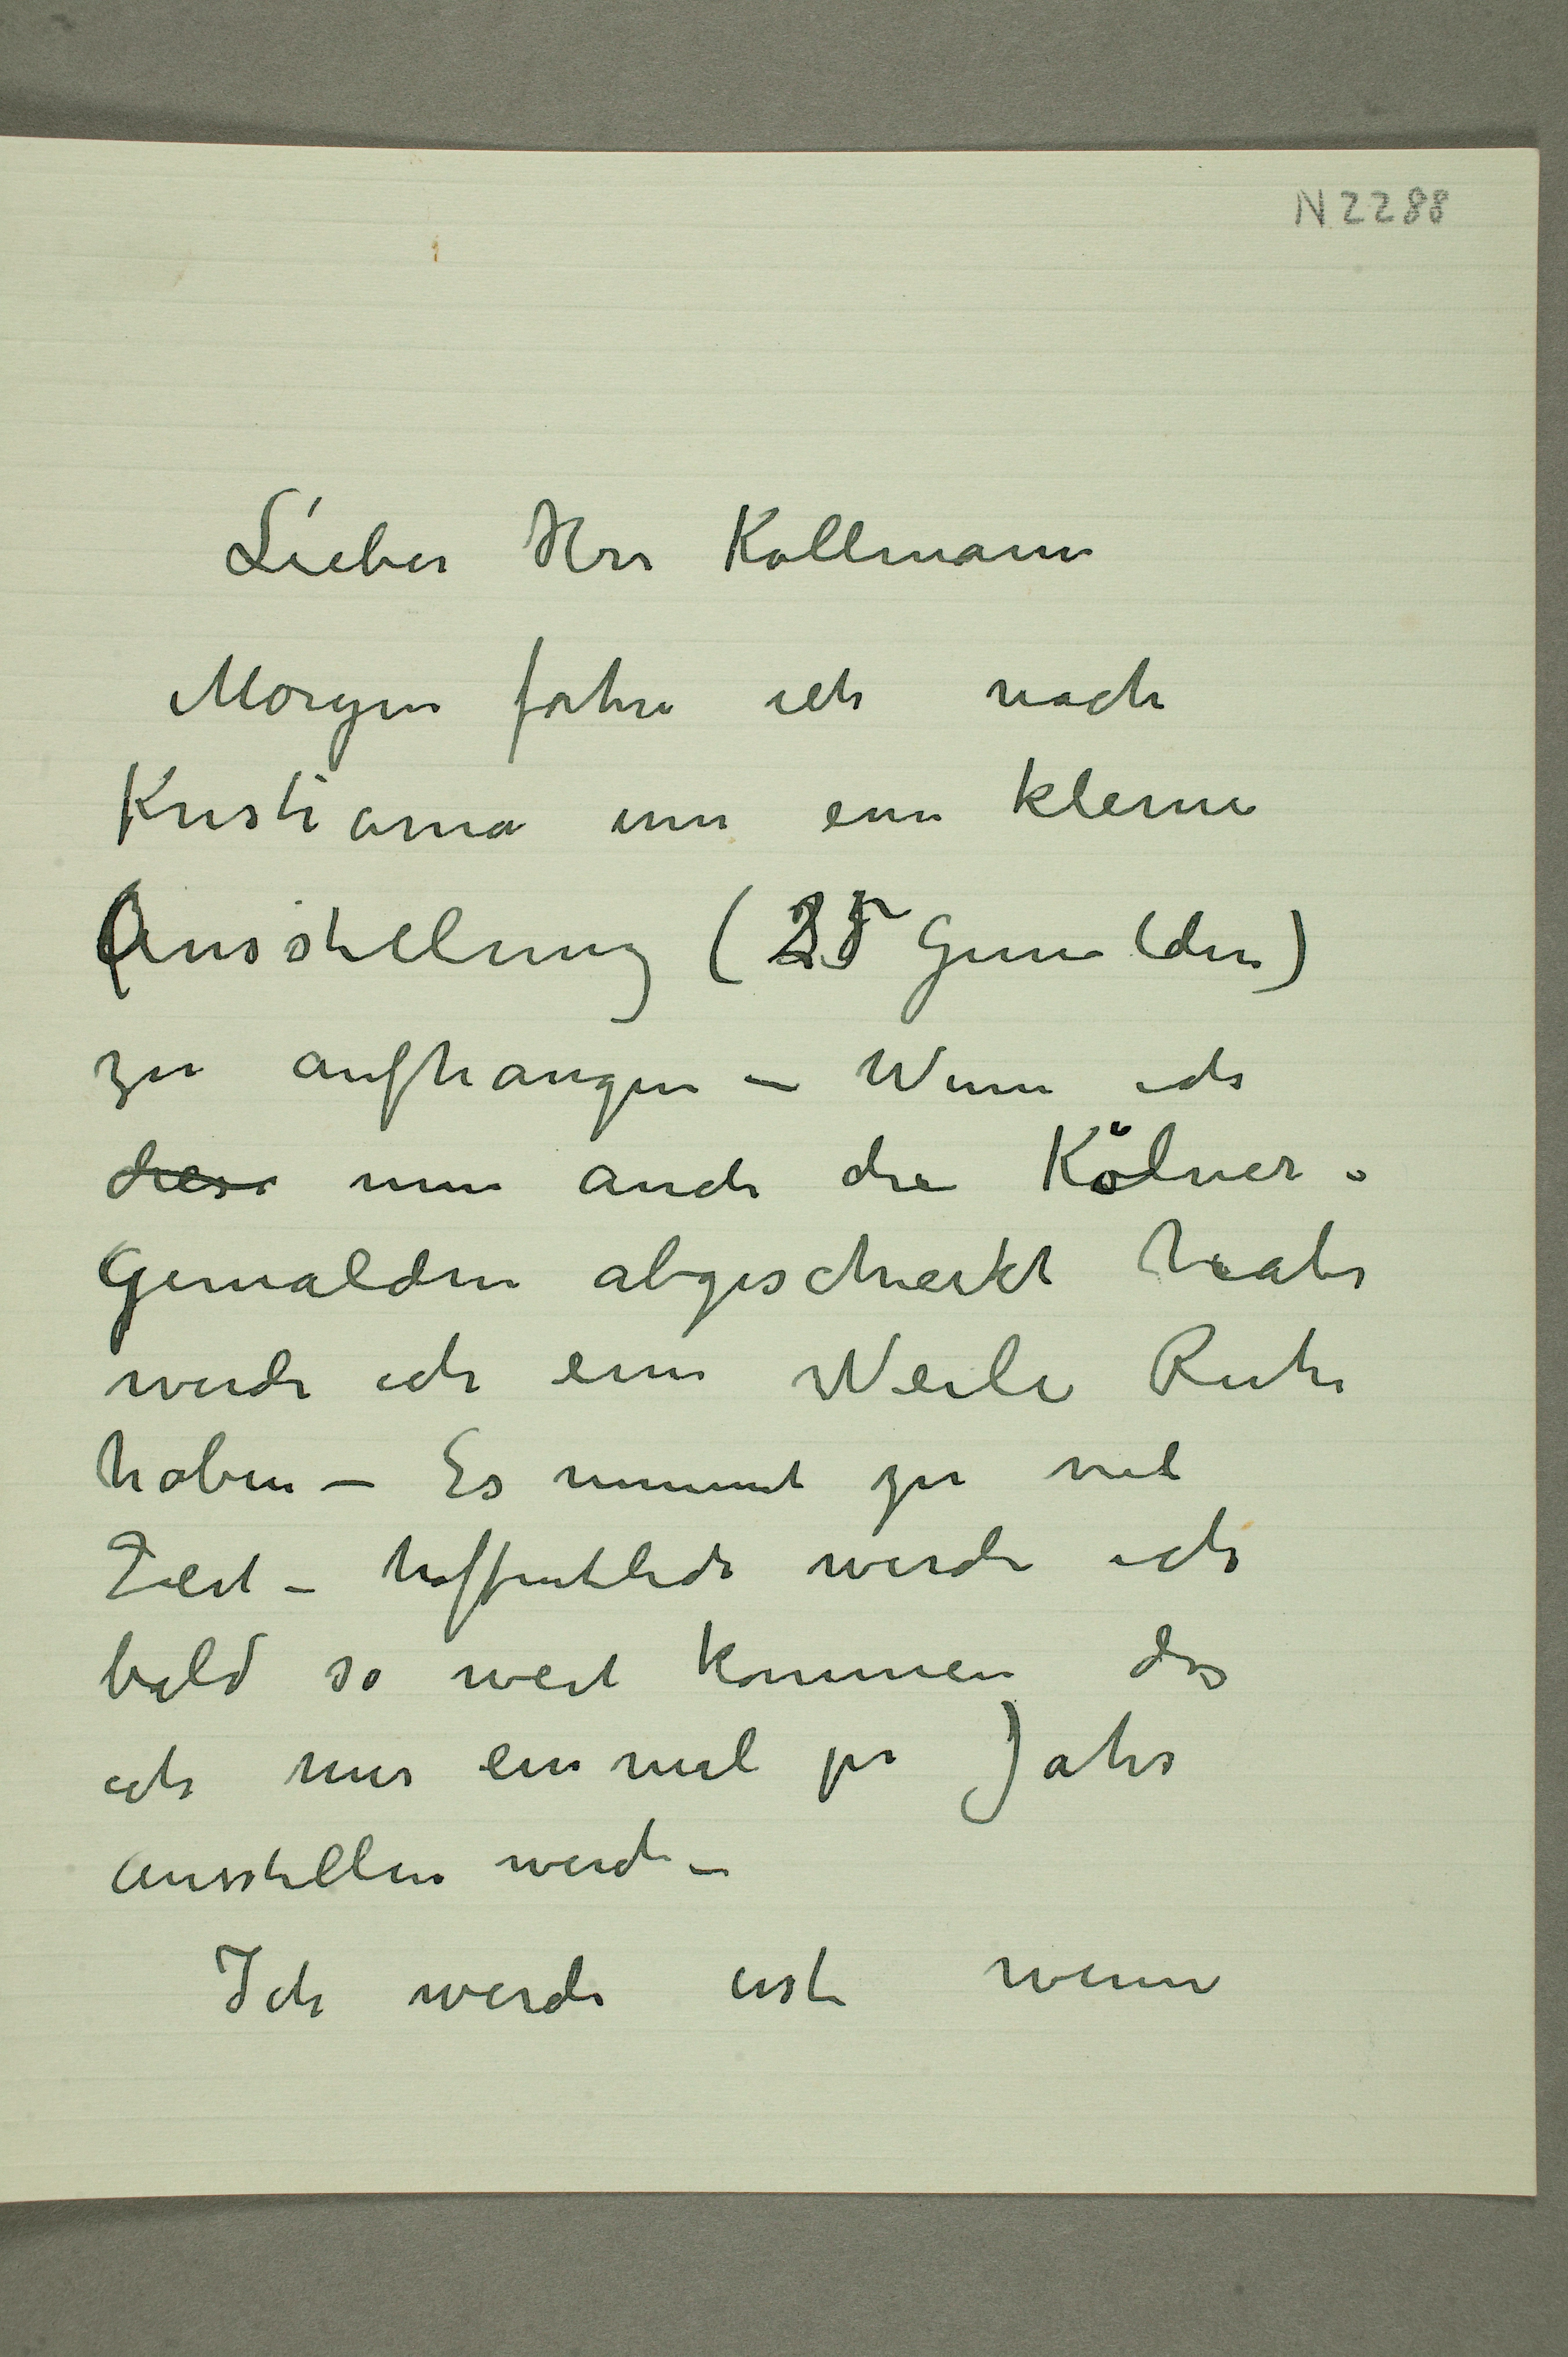 N 2288
Lieber Herr Kollmann
Morgen fahre ich nach
Kristiania um eine kleine
Ausstellung (25 Gemälden)
zu aufhangen – Wenn ich
diese nun auch die Kölner-
Gemalden abgeschickt habe
werde ich eine Weile Ruhe
haben – Es nimmt zu viel
Zeit – hoffentlich werde ich
bald so weit kommen das
ich nur ein mal pr Jahr
ausstellen werde –
Ich werde erste wenn